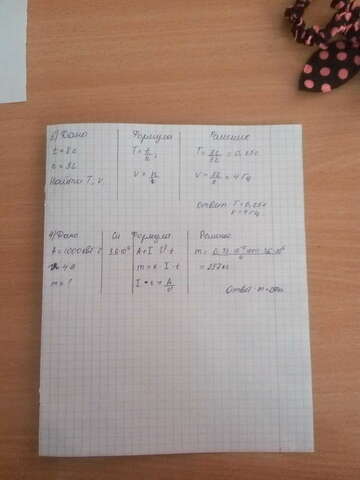 3) Дано
t = 8с
n = 32
Найти T, ν
Формула
T = t/n;
ν = n/t
Решение
T = 8с/32 = 0,25с
ν = 32/8 = 4 Гц
Ответ T = 0,25с
ν = 4 Гц
4) Дано
A = 1000 кВт
4 В
m = ?
Си
3,6·10
Формула
A = I U t
m = k I · t
I · t = A/U
Решение
m =
= 297 кг
Ответ m =